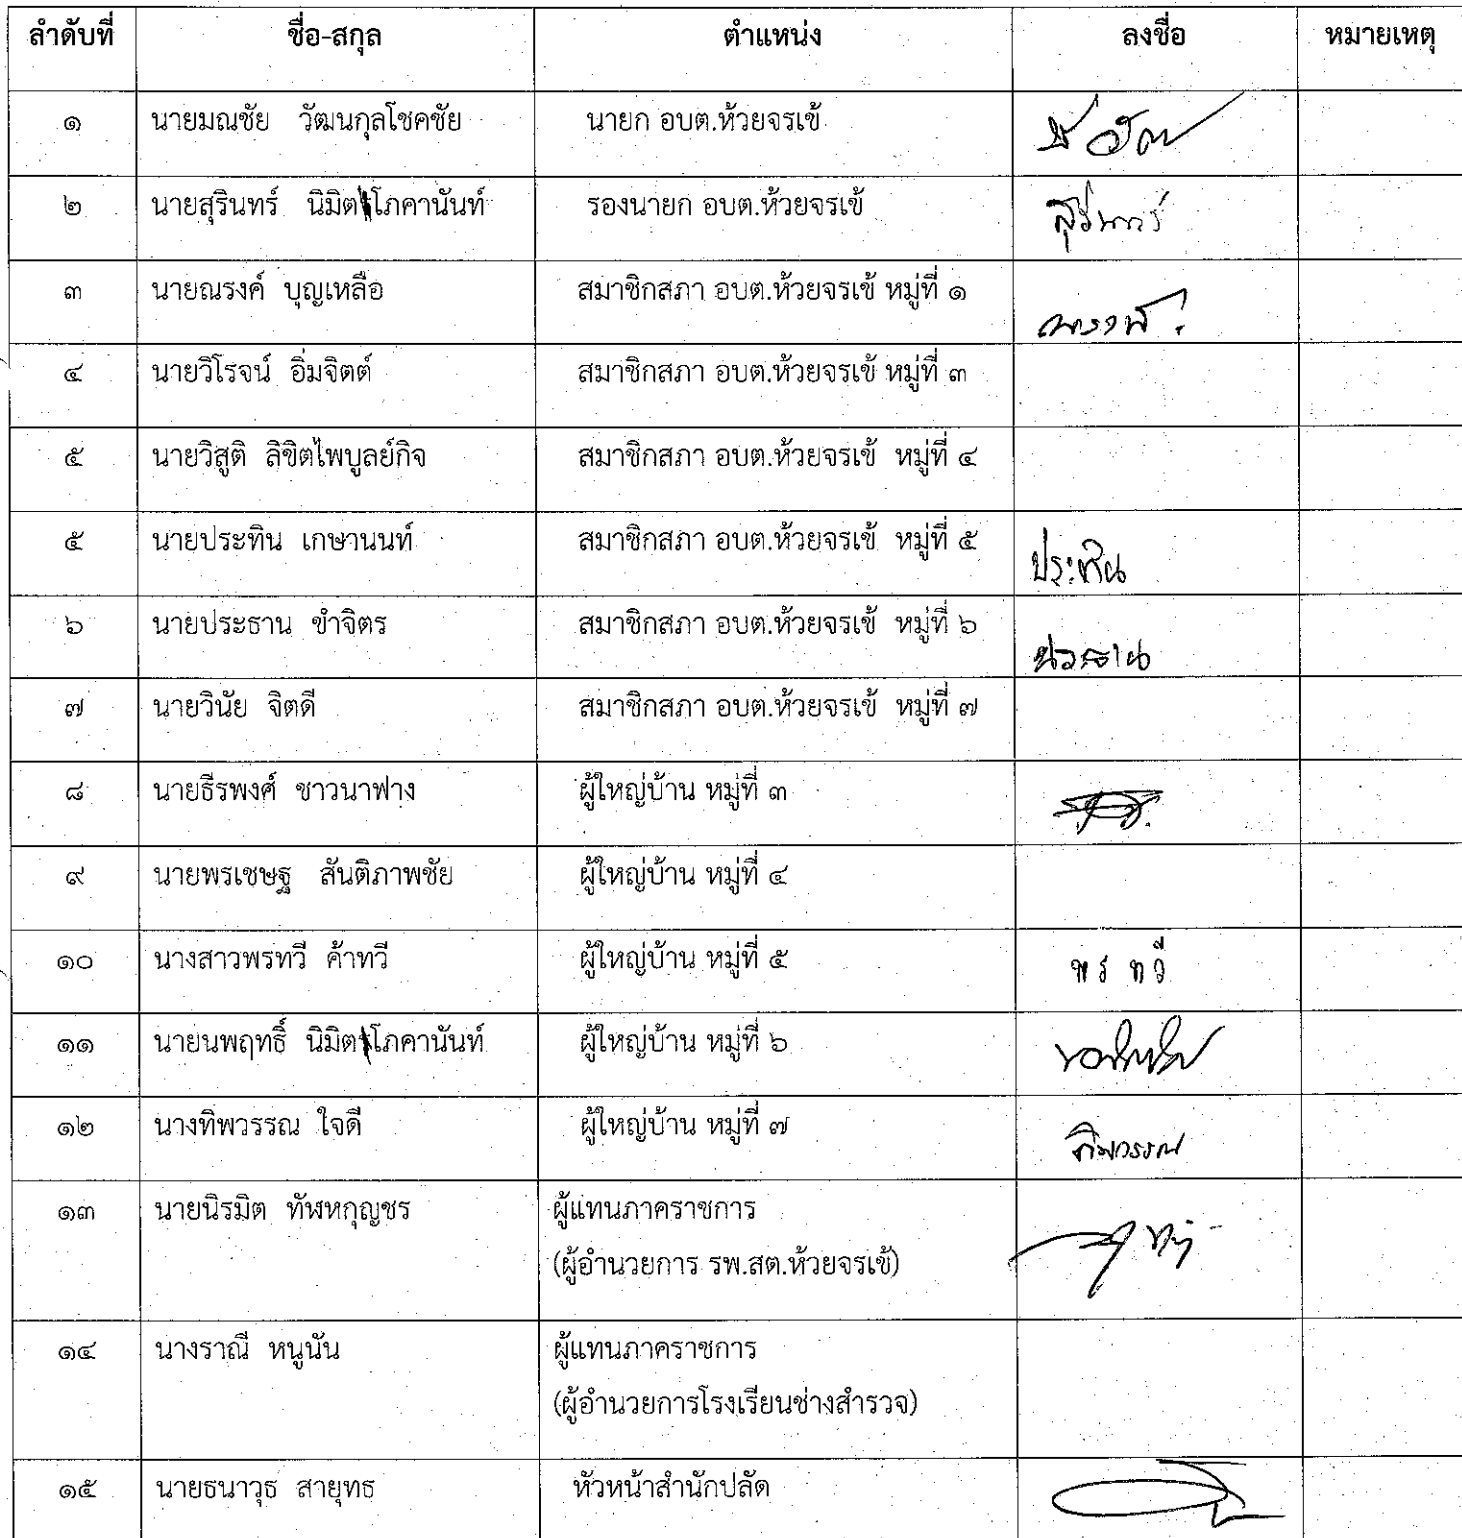 ลำดับที่ ชื่อ-สกุล ตำแหน่ง ลงชื่อ หมายเหตุ
๑ นายมณชัย วัฒนกุลโชคชัย นายก อบต.ห้วยจรเข้
๒ นายสุรินทร์ นิมิตโภคานันท์ รองนายก อบต.ห้วยจรเข้ สุรินทร์
๓ นายณรงค์ บุญเหลือ สมาชิกสภา อบต.ห้วยจรเข้ หมู่ที่ ๑ ณรงค์
๔ นายวิโรจน์ อิ่มจิตต์ สมาชิกสภา อบต.ห้วยจรเข้ หมู่ที่ ๓
๕ นายวิสูติ ลิขิตไพบูลย์กิจ สมาชิกสภา อบต.ห้วยจรเข้ หมู่ที่ ๔
๕ นายประทิน เกษานนท์ สมาชิกสภา อบต.ห้วยจรเข้ หมู่ที่ ๕ ประทิน
๖ นายประธาน ขำจิตร สมาชิกสภา อบต.ห้วยจรเข้ หมู่ที่ ๖ ประธาน
๗ นายวินัย จิตดี สมาชิกสภา อบต.ห้วยจรเข้ หมู่ที่ ๗
๘ นายธีรพงศ์ ชาวนาฟาง ผู้ใหญ่บ้าน หมู่ที่ ๓
๙ นายพรเชษฐ สันติภาพชัย ผู้ใหญ่บ้าน หมู่ที่ ๔
๑๐ นางสาวพรทวี ค้าทวี ผู้ใหญ่บ้าน หมู่ที่ ๕ พรทวี
๑๑ นายนพฤทธิ์ นิมิตโภคานันท์ ผู้ใหญ่บ้าน หมู่ที่ ๖
๑๒ นางทิพวรรณ ใจดี ผู้ใหญ่บ้าน หมู่ที่ ๗ ทิพวรรณ
๑๓ นายนิรมิต ทัฬหกุญชร ผู้แทนภาคราชการ
(ผู้อำนวยการ รพ.สต.ห้วยจรเข้)
๑๔ นางราณี หนูนัน ผู้แทนภาคราชการ
(ผู้อำนวยการโรงเรียนช่างสำรวจ)
๑๕ นายธนาวุธ สายุทธ หัวหน้าสำนักปลัด